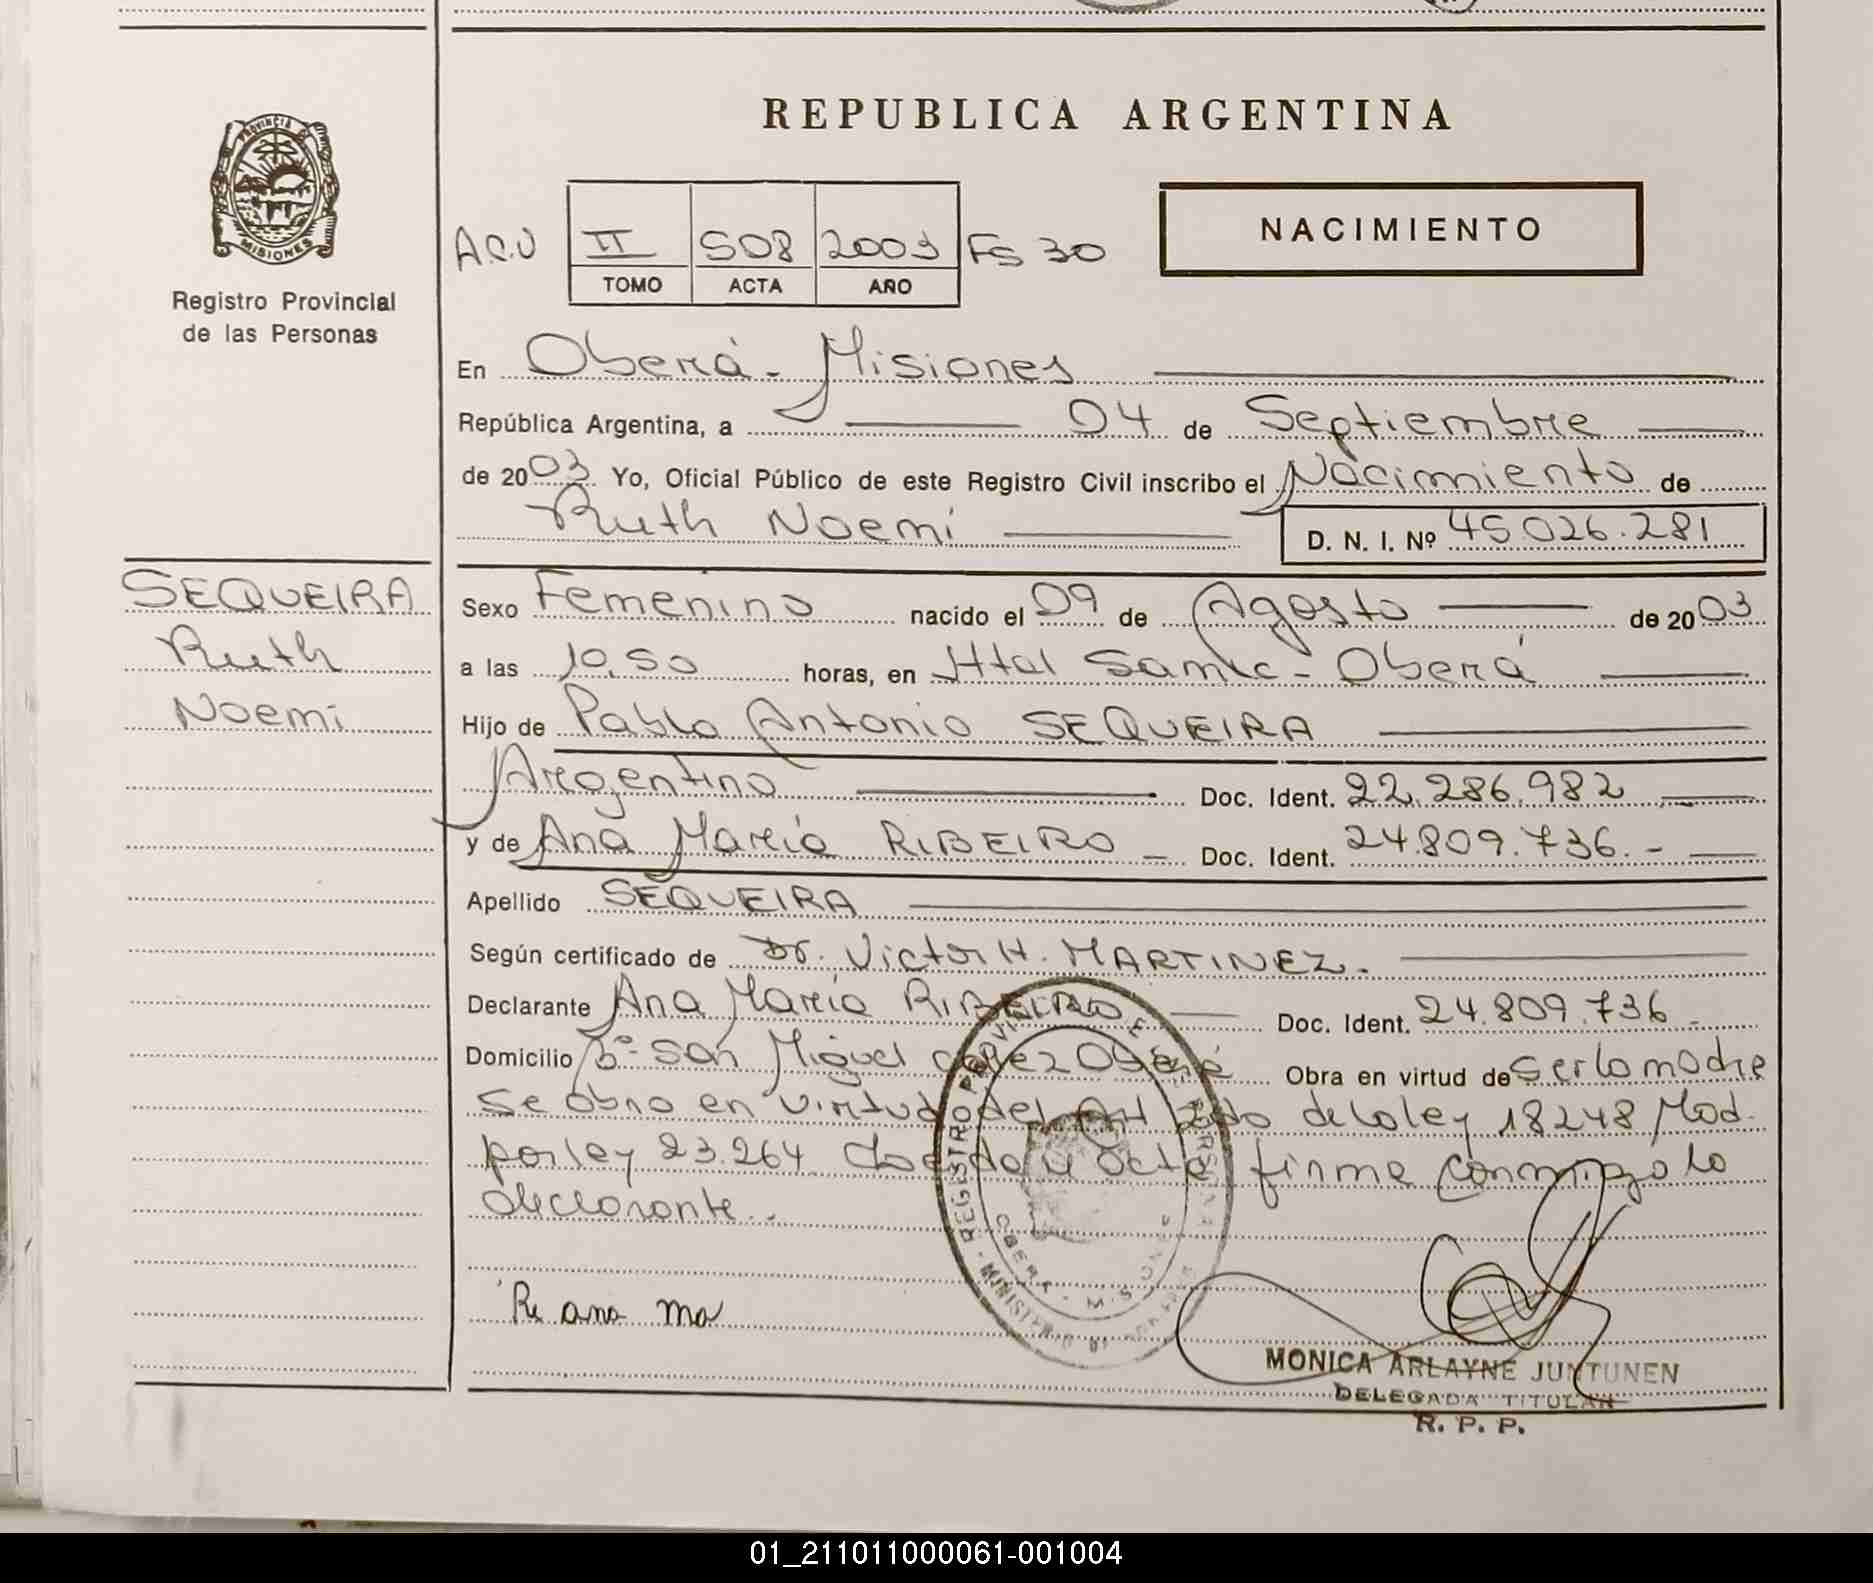 REPUBLICA ARGENTINA
PROVINCIA DE MISIONES
Registro Provincial
de las Personas
NACIMIENTO
A.C.U II 508 2003 FS 30
TOMO ACTA AÑO
En Oberá - Misiones
República Argentina, a 04 de Septiembre
de 2003 Yo, Oficial Público de este Registro Civil inscribo el Nacimiento de
Ruth Noemi D. N. I. Nº 45.026.281
SEQUEIRA
Ruth
Noemi
Sexo Femenino nacido el 09 de Agosto de 2003
a las 10,50 horas, en Htal Samic - Oberá
Hijo de Pablo Antonio SEQUEIRA
Argentino Doc. Ident. 22.286.982
y de Ana María RIBEIRO - Doc. Ident. 24.809.736.-
Apellido SEQUEIRA
Según certificado de Dr. Victor H. MARTINEZ.
Declarante Ana María RIBEIRO Doc. Ident. 24.809.736 -
Domicilio Bº San Miguel Oberá Obra en virtud de ser la madre
Se obra en virtud del Art de la ley 18248 Mod.
por ley 23.264 acta firma conmigo la
declarante.-
Re ana ma
REGISTRO PROVINCIAL DE LAS PERSONAS
OBERA - MISIONES
MINISTERIO DE GOBIERNO
MONICA ARLAYNE JUNTUNEN
DELEGADA TITULAR
R. P. P.
01_211011000061-001004